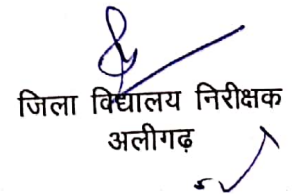 जिला विद्यालय निरीक्षक
अलीगढ़